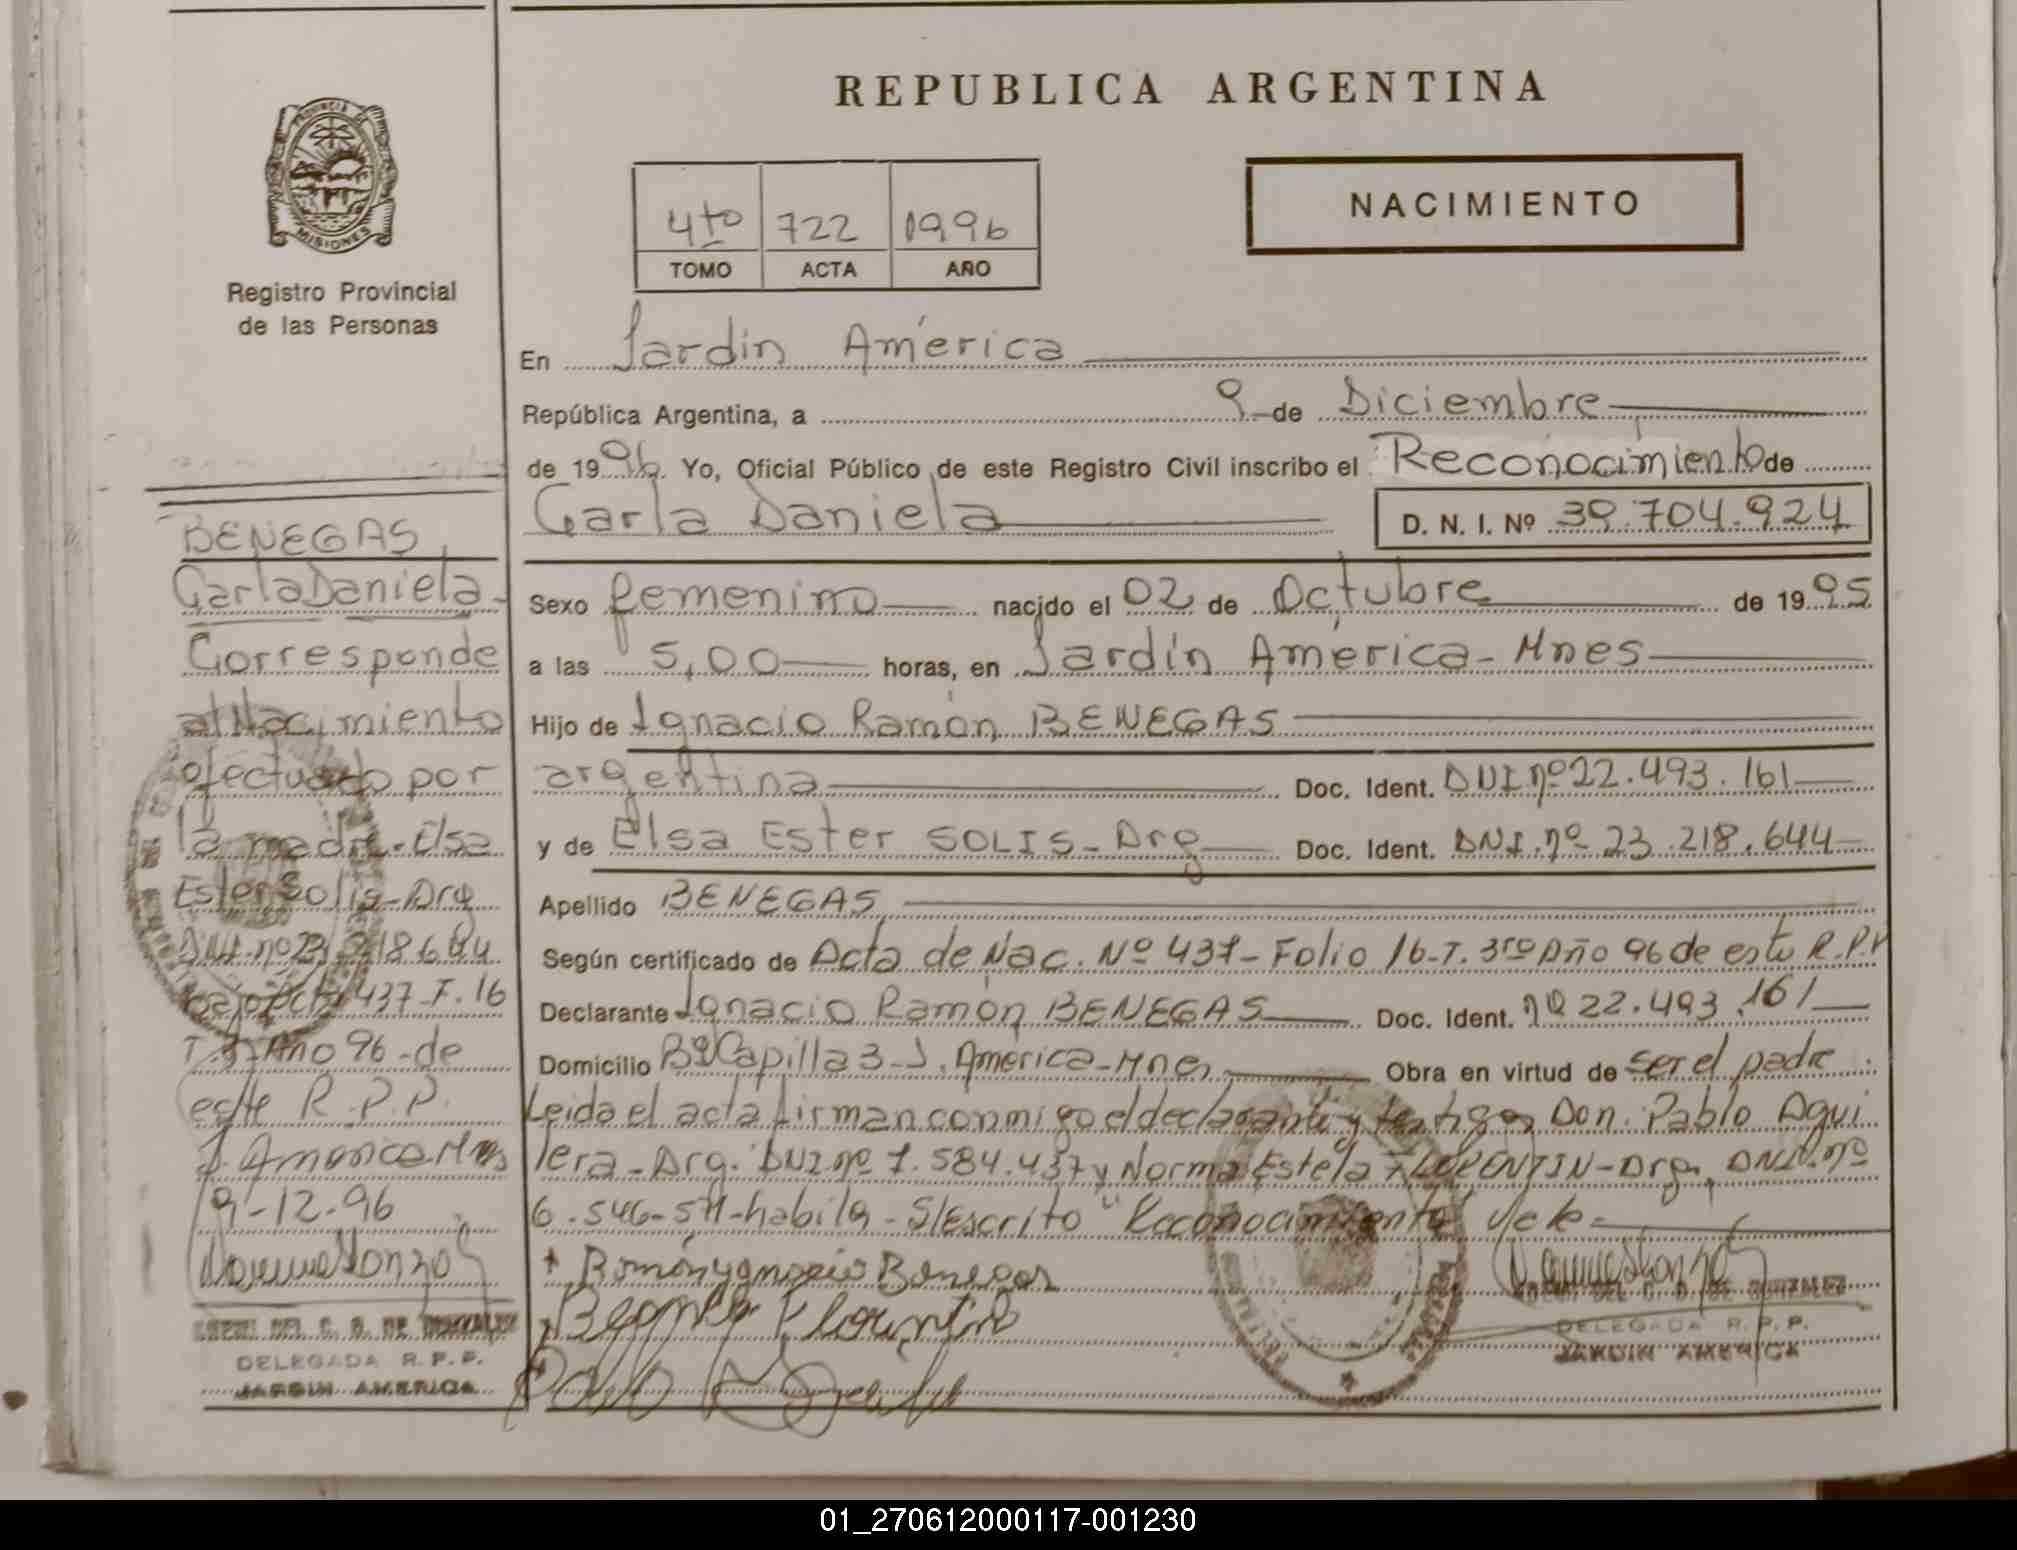 REPUBLICA ARGENTINA
PROVINCIA DE
MISIONES
Registro Provincial
de las Personas
4to 722 1996
TOMO ACTA AÑO
NACIMIENTO
En Jardin América
República Argentina, a 9 de Diciembre
de 1996. Yo, Oficial Público de este Registro Civil inscribo el Reconocimiento de
Carla Daniela D. N. I. Nº 39.704.924
Sexo femenino nacido el 02 de Octubre de 1995
a las 5,00 horas, en Jardín América - Mnes
Hijo de Ignacio Ramón BENEGAS
argentina Doc. Ident. DNI nº 22.493.161
y de Elsa Ester SOLIS - Arg Doc. Ident. DNI. nº 23.218.644
Apellido BENEGAS
Según certificado de Acta de Nac. Nº 437 - Folio 16 - T. 3ro Año 96 de este R.P.P
Declarante Ignacio Ramón BENEGAS Doc. Ident. nº 22.493.161
Domicilio Bº Capilla 3 - J. América - Mnes Obra en virtud de ser el padre
Leida el acta firman conmigo el declarante y testigos Don. Pablo Agui
lera - Arg. DNI nº 7.584.437 y Norma Estela FLORENTIN - Arg. DNI. nº
6.546-571 - habil - S/Escrito "Reconocimiento" Vale -
Ramón Ygnacio Benegas
DELEGADA R. P. P.
JARDIN AMERICA
BENEGAS
Carla Daniela -
Corresponde
al Nacimiento
efectuado por
la madre - Elsa
Ester Solis - Arg
DNI. nº 23.218.644
bajo Acta 437 - F. 16
T. 3º Año 96 - de
este R.P.P.
J. America Mnes
9-12.96
DELEGADA R. P. P.
JARDIN AMERICA
01_270612000117-001230